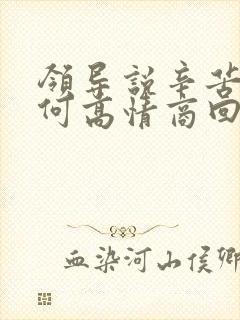 領导說辛苦
何高情商回
血染河山侯卿